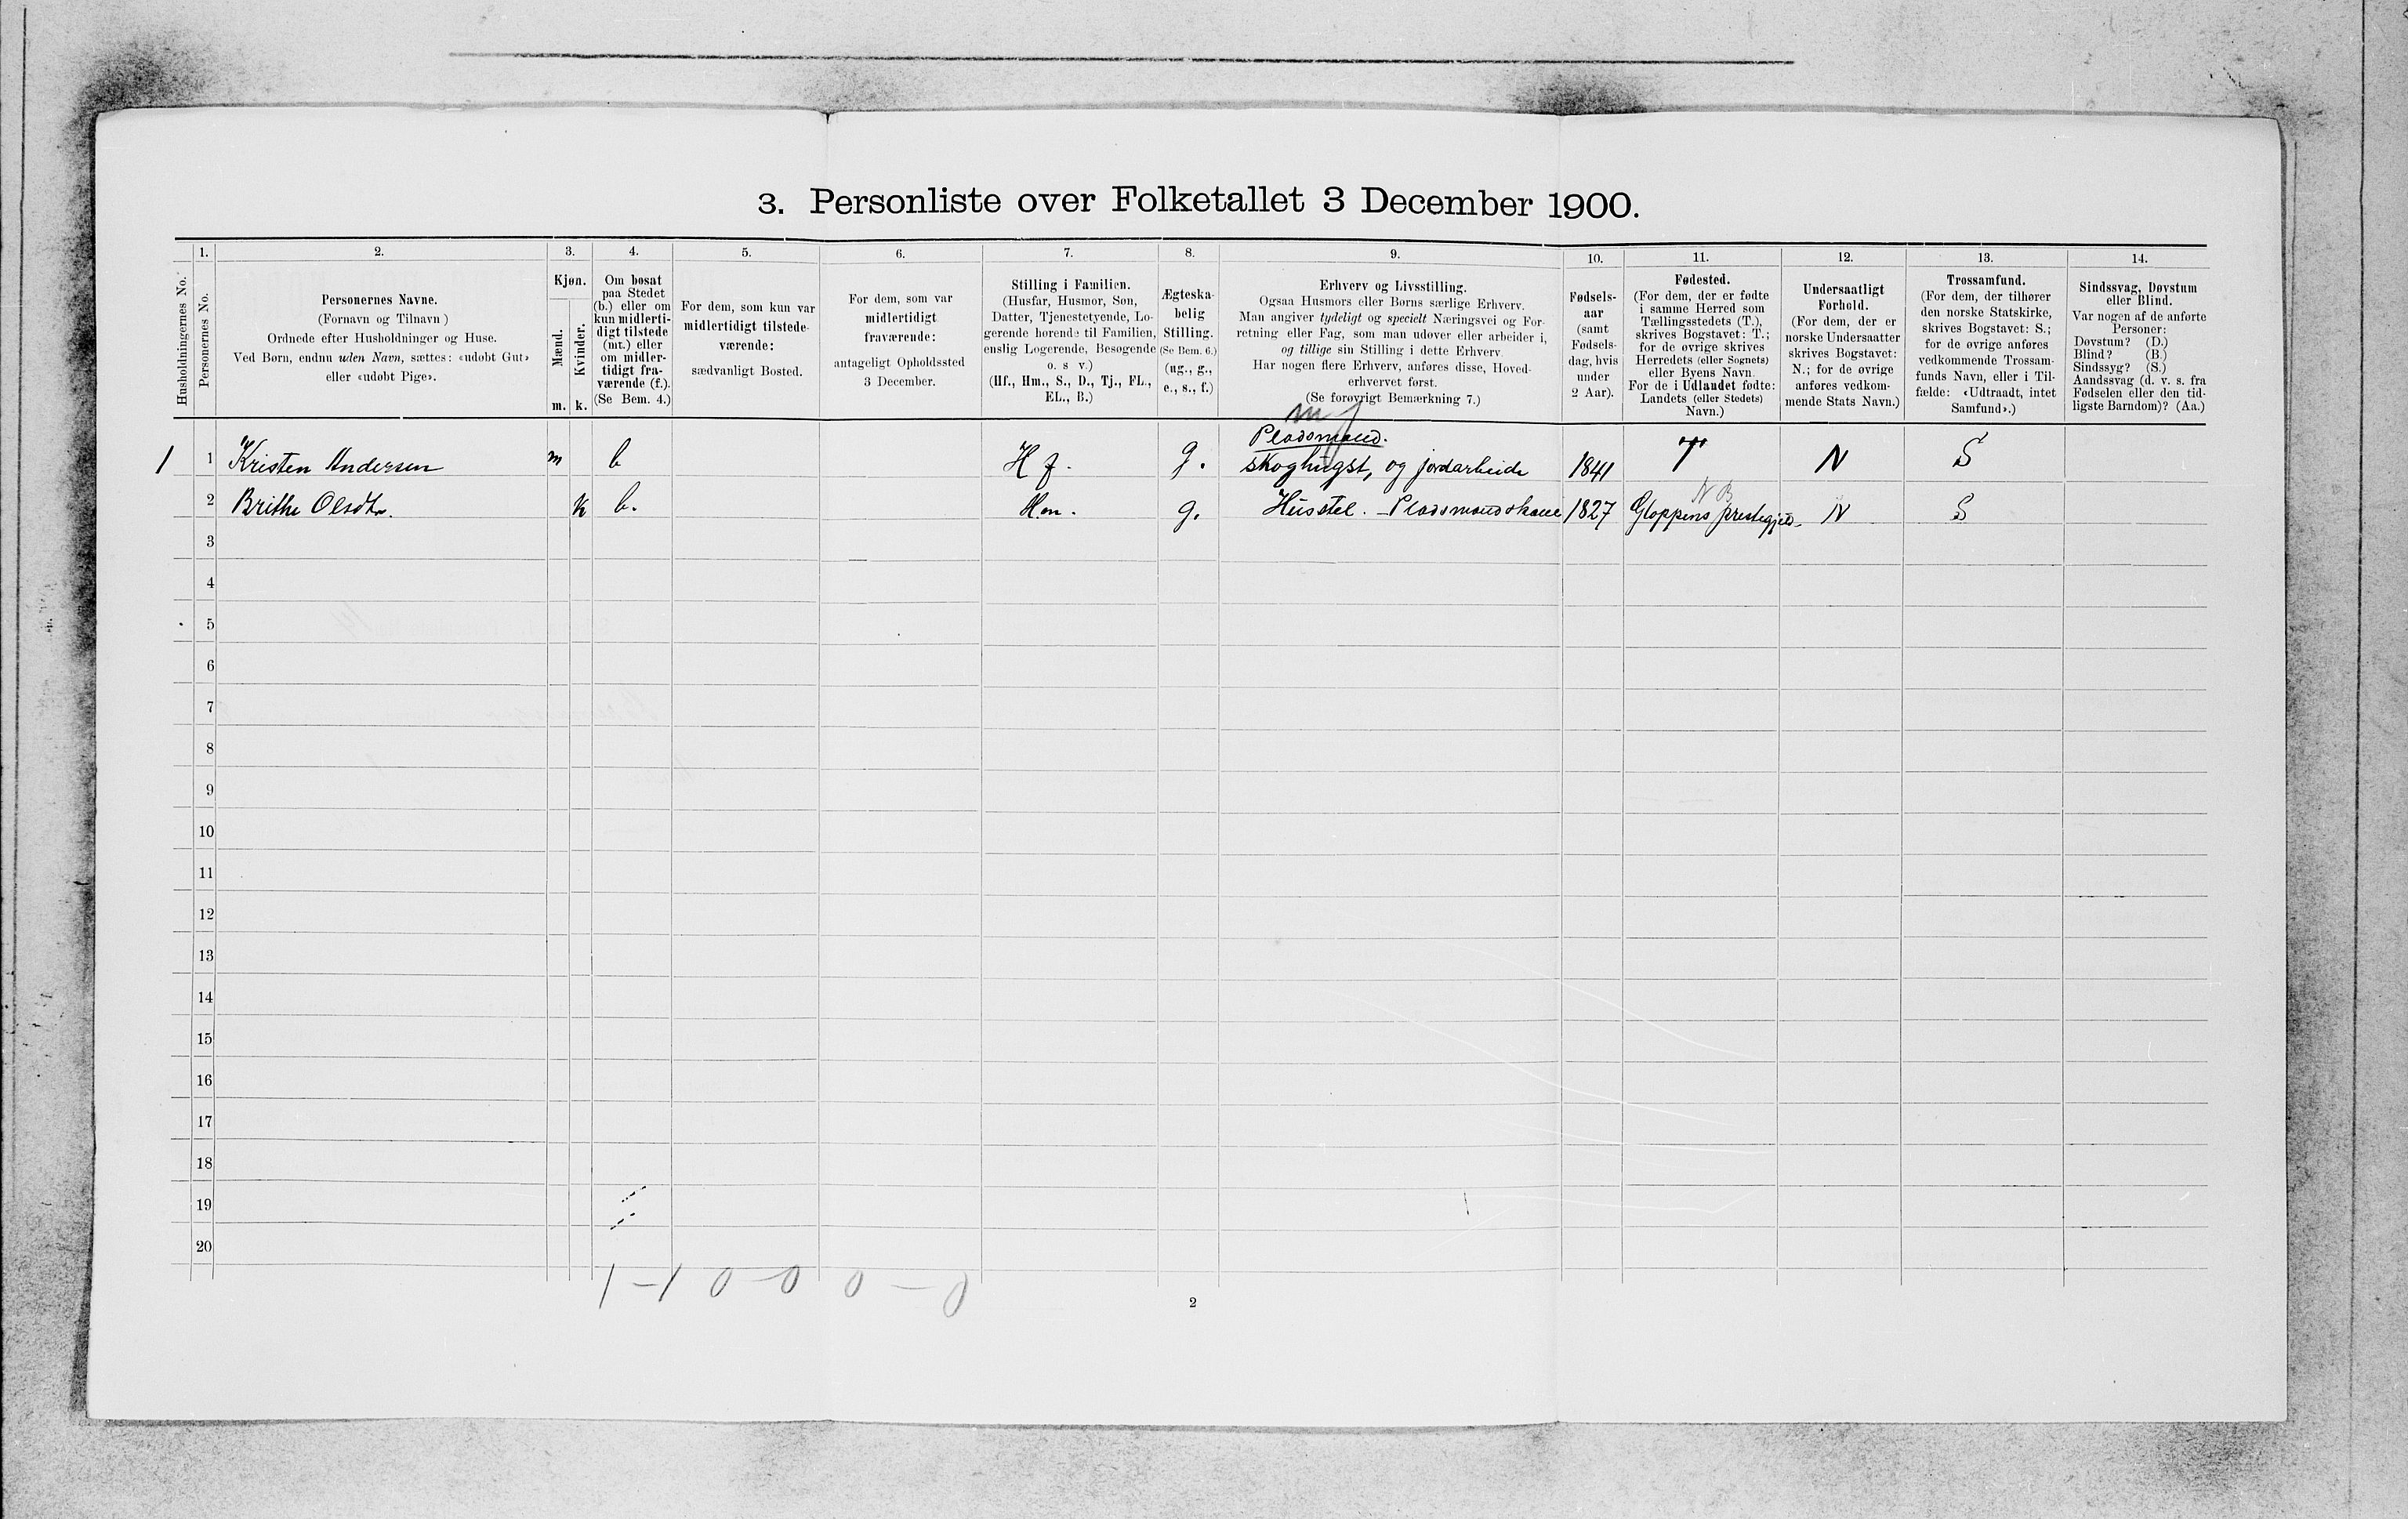 3. Personliste over Folketallet 3 December 1900.
Husholdningernes No.
1.
Personernes No.
2.
Personernes Navne.
(Fornavn og Tilnavn)
Ordnede efter Husholdninger og Huse.
Ved Børn, endnu uden Navn, sættes: «udøbt Gut»
eller «udøbt Pige».
3.
Kjøn.
Mænd.
Kvinder.
m. k.
4.
Om bosat
paa Stedet
(b.) eller om
kun midlerti-
digt tilstede
(mt.) eller
om midler-
tidigt fra-
værende (f.).
(Se Bem. 4.)
5.
For dem, som kun var
midlertidigt tilstede-
værende:
sædvanligt Bosted.
6.
For dem, som var
midlertidigt
fraværende:
antageligt Opholdssted
3 December.
7.
Stilling i Familien.
(Husfar, Husmor, Søn,
Datter, Tjenestetyende, Lo-
gerende hørende til Familien,
enslig Logerende, Besøgende
o. s v.)
(Hf., Hm., S., D., Tj., FL.,
EL., B.)
8.
Ægteska-
belig
Stilling.
(Se Bem. 6.)
(ug., g.,
e., s., f.)
9.
Erhverv og Livsstilling.
Ogsaa Husmors eller Børns særlige Erhverv.
Man angiver tydeligt og specielt Næringsvei og For-
retning eller Fag, som man udøver eller arbeider i,
og tillige sin Stilling i dette Erhverv
Har nogen flere Erhverv, anføres disse, Hoved-
erhvervet først.
(Se forøvrigt Bemærkning 7.)
10.
Fødsels-
aar
(samt
Fødsels-
dag, hvis
under
2 Aar).
11.
Fødested.
(For dem, der er fødte
i samme Herred som
Tællingsstedets (T.),
skrives Bogstavet: T.;
for de øvrige skrives
Herredets (eller Sognets)
eller Byens Navn.
For de i Udlandet fødte:
Landets (eller Stedets)
Navn.)
12.
Undersaatligt
Forhold.
(For dem, der er
norske Undersaatter
skrives Bogstavet:
N.; for de øvrige
anføres vedkom-
mende Stats Navn.)
13.
Trossamfund.
(For dem, der tilhører
den norske Statskirke,
skrives Bogstavet: S.;
for de øvrige anføres
vedkommende Trossam-
funds Navn, eller i Til-
fælde: «Udtraadt, intet
Samfund».)
14.
Sindssvag, Døvstum
eller Blind.
Var nogen af de anførte
Personer:
Døvstum? (D.)
Blind? (B.)
Sindssyg? (S.)
Aandssvag (d. v. s. fra
Fødselen eller den tid-
ligste Barndom)? (Aa.)
Pladsmand.
1 1 Kristen Andersen m b Hf. g. skoghugst, og jordarbeide 1841 T N S
NB
2 Brithe Olsdtr. k b. Hm. g. Husstel. - Pladsmandskone 1827 Gloppens prestegjeld. N S
3
4
5
6
7
8
9
10
11
12
13
14
15
16
17
18
19
20
1 - 1 0 - 0 0 - 0
2